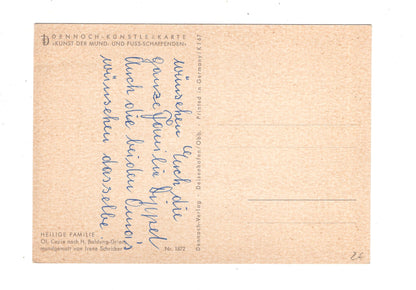 DENNOCH-KÜNSTLERKARTE
»KUNST DER MUND- UND FUSS-SCHAFFENDEN«
wünschen Euch die
ganze Familie Dippel
Auch die beiden Oma's
wünschen dasselbe
HEILIGE FAMILIE
Öl, Copie nach H. Baldung-Grien
mundgemalt von Irene Schricker
Nr. 1672
Dennoch-Verlag · Deisenhofen/Obb. · Printed in Germany/K